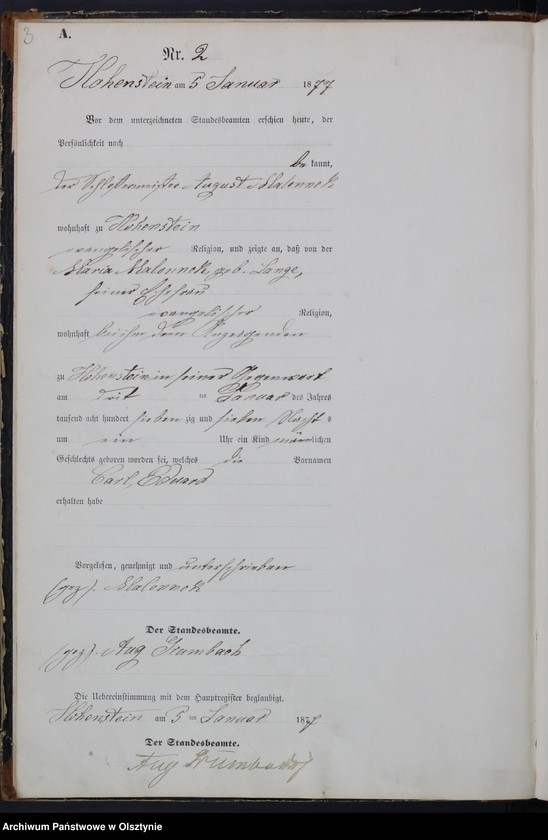 3
A.
Nr. 2
Hohenstein am 5 Januar 1877
Vor dem unterzeichneten Standesbeamten erschien heute, der
Persönlichkeit nach
be kannt,
der August Malonnek
wohnhaft zu Hohenstein
evangelischer Religion, und zeigte an, daß von der
Maria Malonnek, geb. Lange,
seiner Ehefrau
evangelischer Religion,
wohnhaft bei ihm dem Anzeigenden
zu Hohenstein in seiner Gegenwart
am ten Januar des Jahres
tausend acht hundert sieben zig und sieben Nachts
um ein Uhr ein Kind männlichen
Geschlechts geboren worden sei, welches die Vornamen
Carl, Eduard
erhalten habe
Vorgelesen, genehmigt und unterschrieben
(gez). Malonnek
Der Standesbeamte.
(gez). Aug Grumbach
Die Uebereinstimmung mit dem Hauptregister beglaubigt.
Hohenstein am 5 ten Januar 1877
Der Standesbeamte.
Aug Grumbach
Archiwum Państwowe w Olsztynie